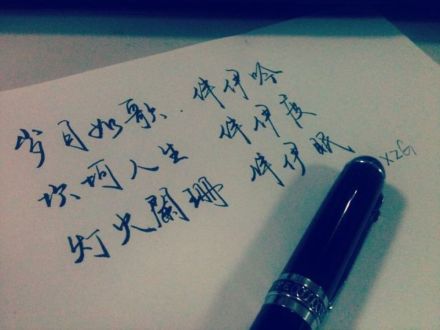 岁月如歌、伴伊吟
坎坷人生 伴伊度
灯火阑珊 伴伊眠
XZG